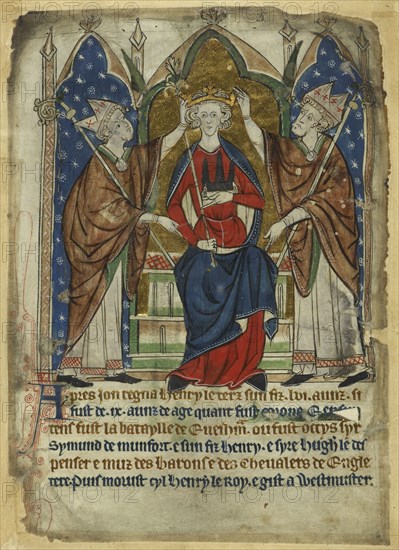 Apres Jon regna Henry le terz sun fiz .lvi. aunz. si
fust de .ix. aunz de age quant fust corone
tens fust la batayle de Evesham. ou fust occys syr
Symund de munfort. e sun fiz Henry. e syre Hugh le des
penser e muz des barons e des chevalers de Engle
tere. Puis morust cyl Henry le Roy. e gist a Westmuster.